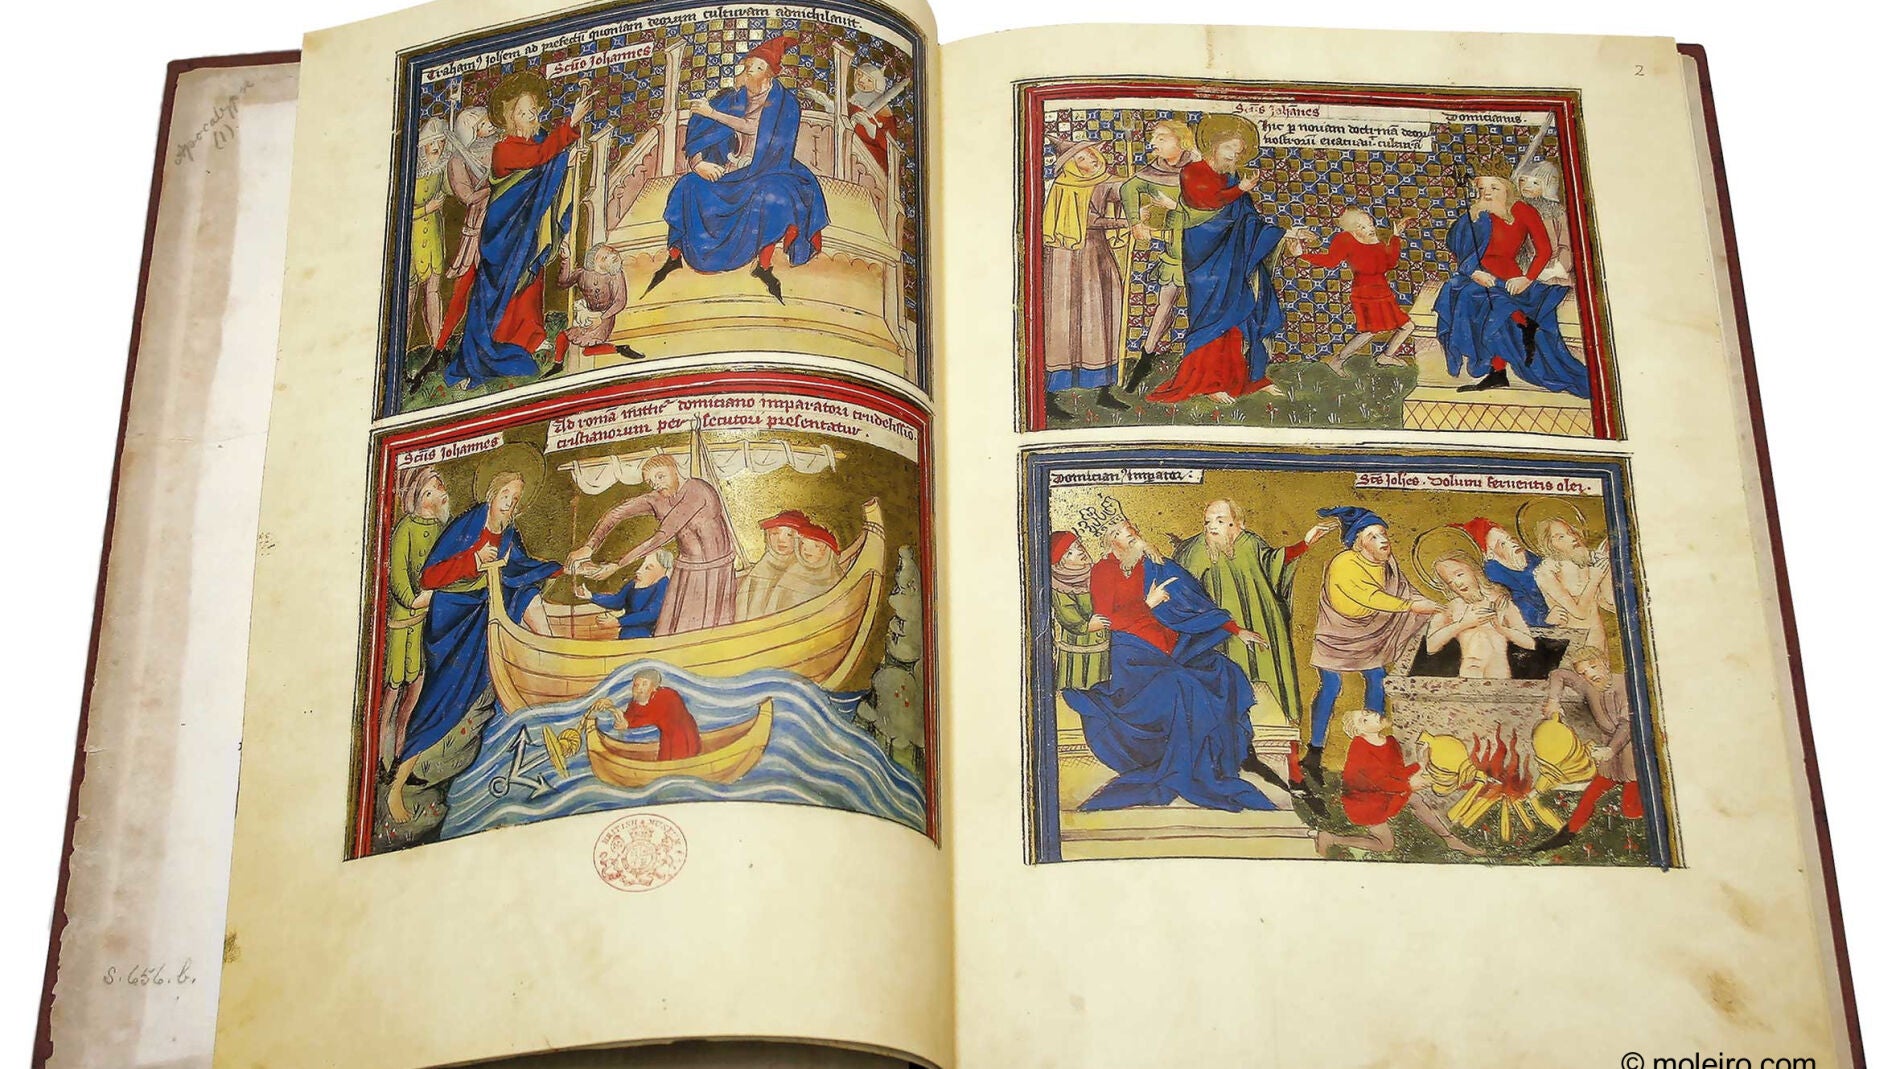 Apocalypse
(1).
Trahant᾽ Johem ad prefectū quoniam deorum culturam adnichilauit.
Scūs Johannes
Ad romā mittit᾽ domiciano imparatori crudelissio.
cristianorum persecutori presentatur.
Scūs Johannes
BRITISH MUSEUM
S. 656. b.
2
Scūs Johānes
Domicianus.
Hic p nouam doctrinā deoru
nostrorū euacuau cultura
Domician᾽ impator:
Scs Johes. Dolium feruentis olei.
© moleiro.com